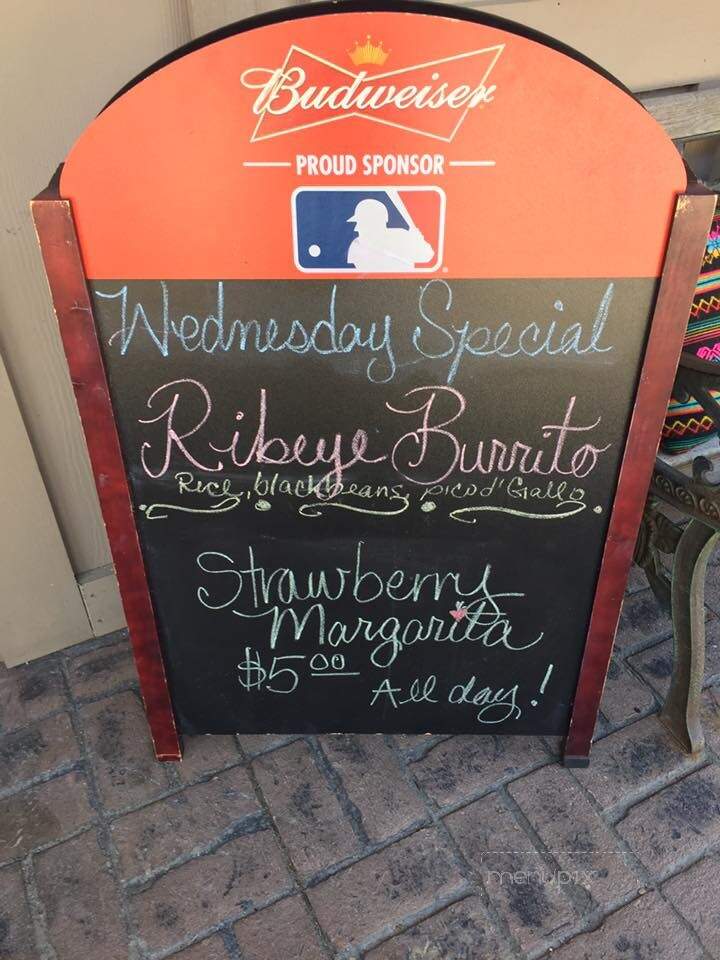 Budweiser
PROUD SPONSOR
Wednesday Special
Ribeye Burrito
Rice, black beans, pico d' Gallo
Strawberry
Margarita
$5.00
All day!
menupix